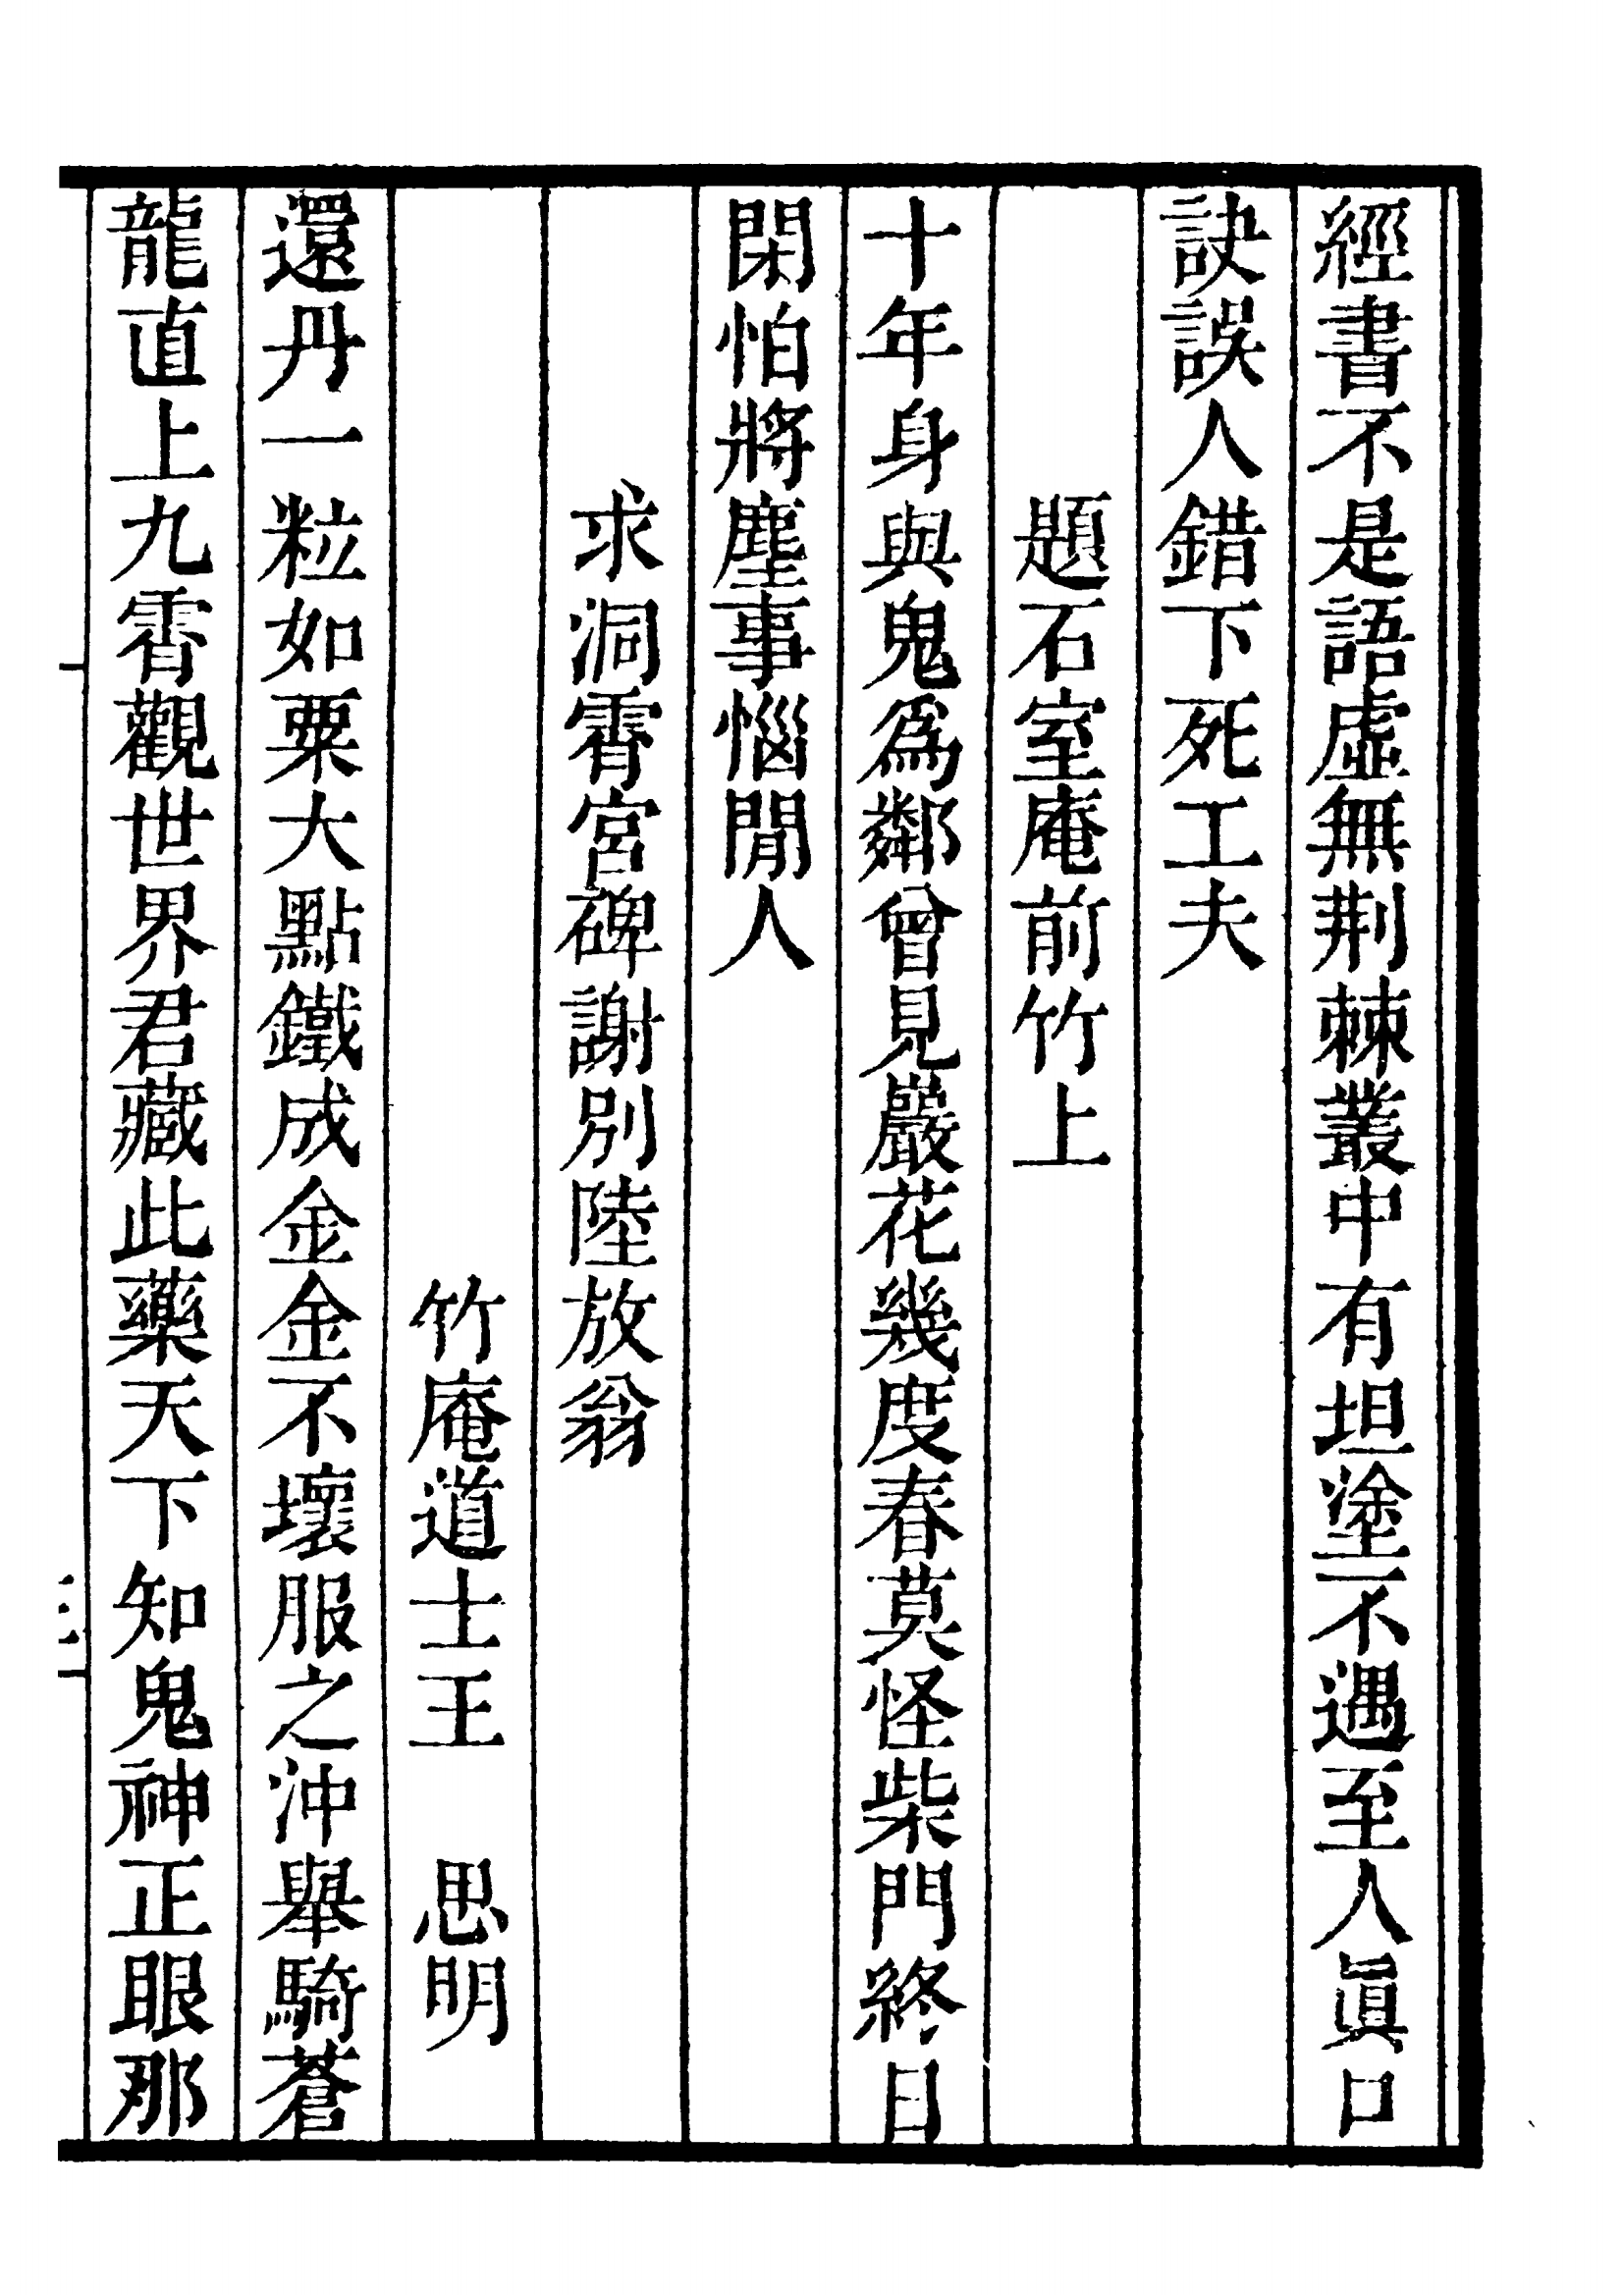 經書不是語虛無荆棘叢中有坦塗不遇至人眞口
訣誤人錯下死工夫
題石室庵前竹上
十年身與鬼爲鄰曾見巖花幾度春莫怪柴門終日
閑怕將塵事惱閒人
求洞霄宮碑謝別陸放翁
竹庵道士王　思明
還丹一粒如粟大點鐵成金金不壞服之沖舉騎蒼
龍直上九霄觀世界君藏此藥天下知鬼神正眼那